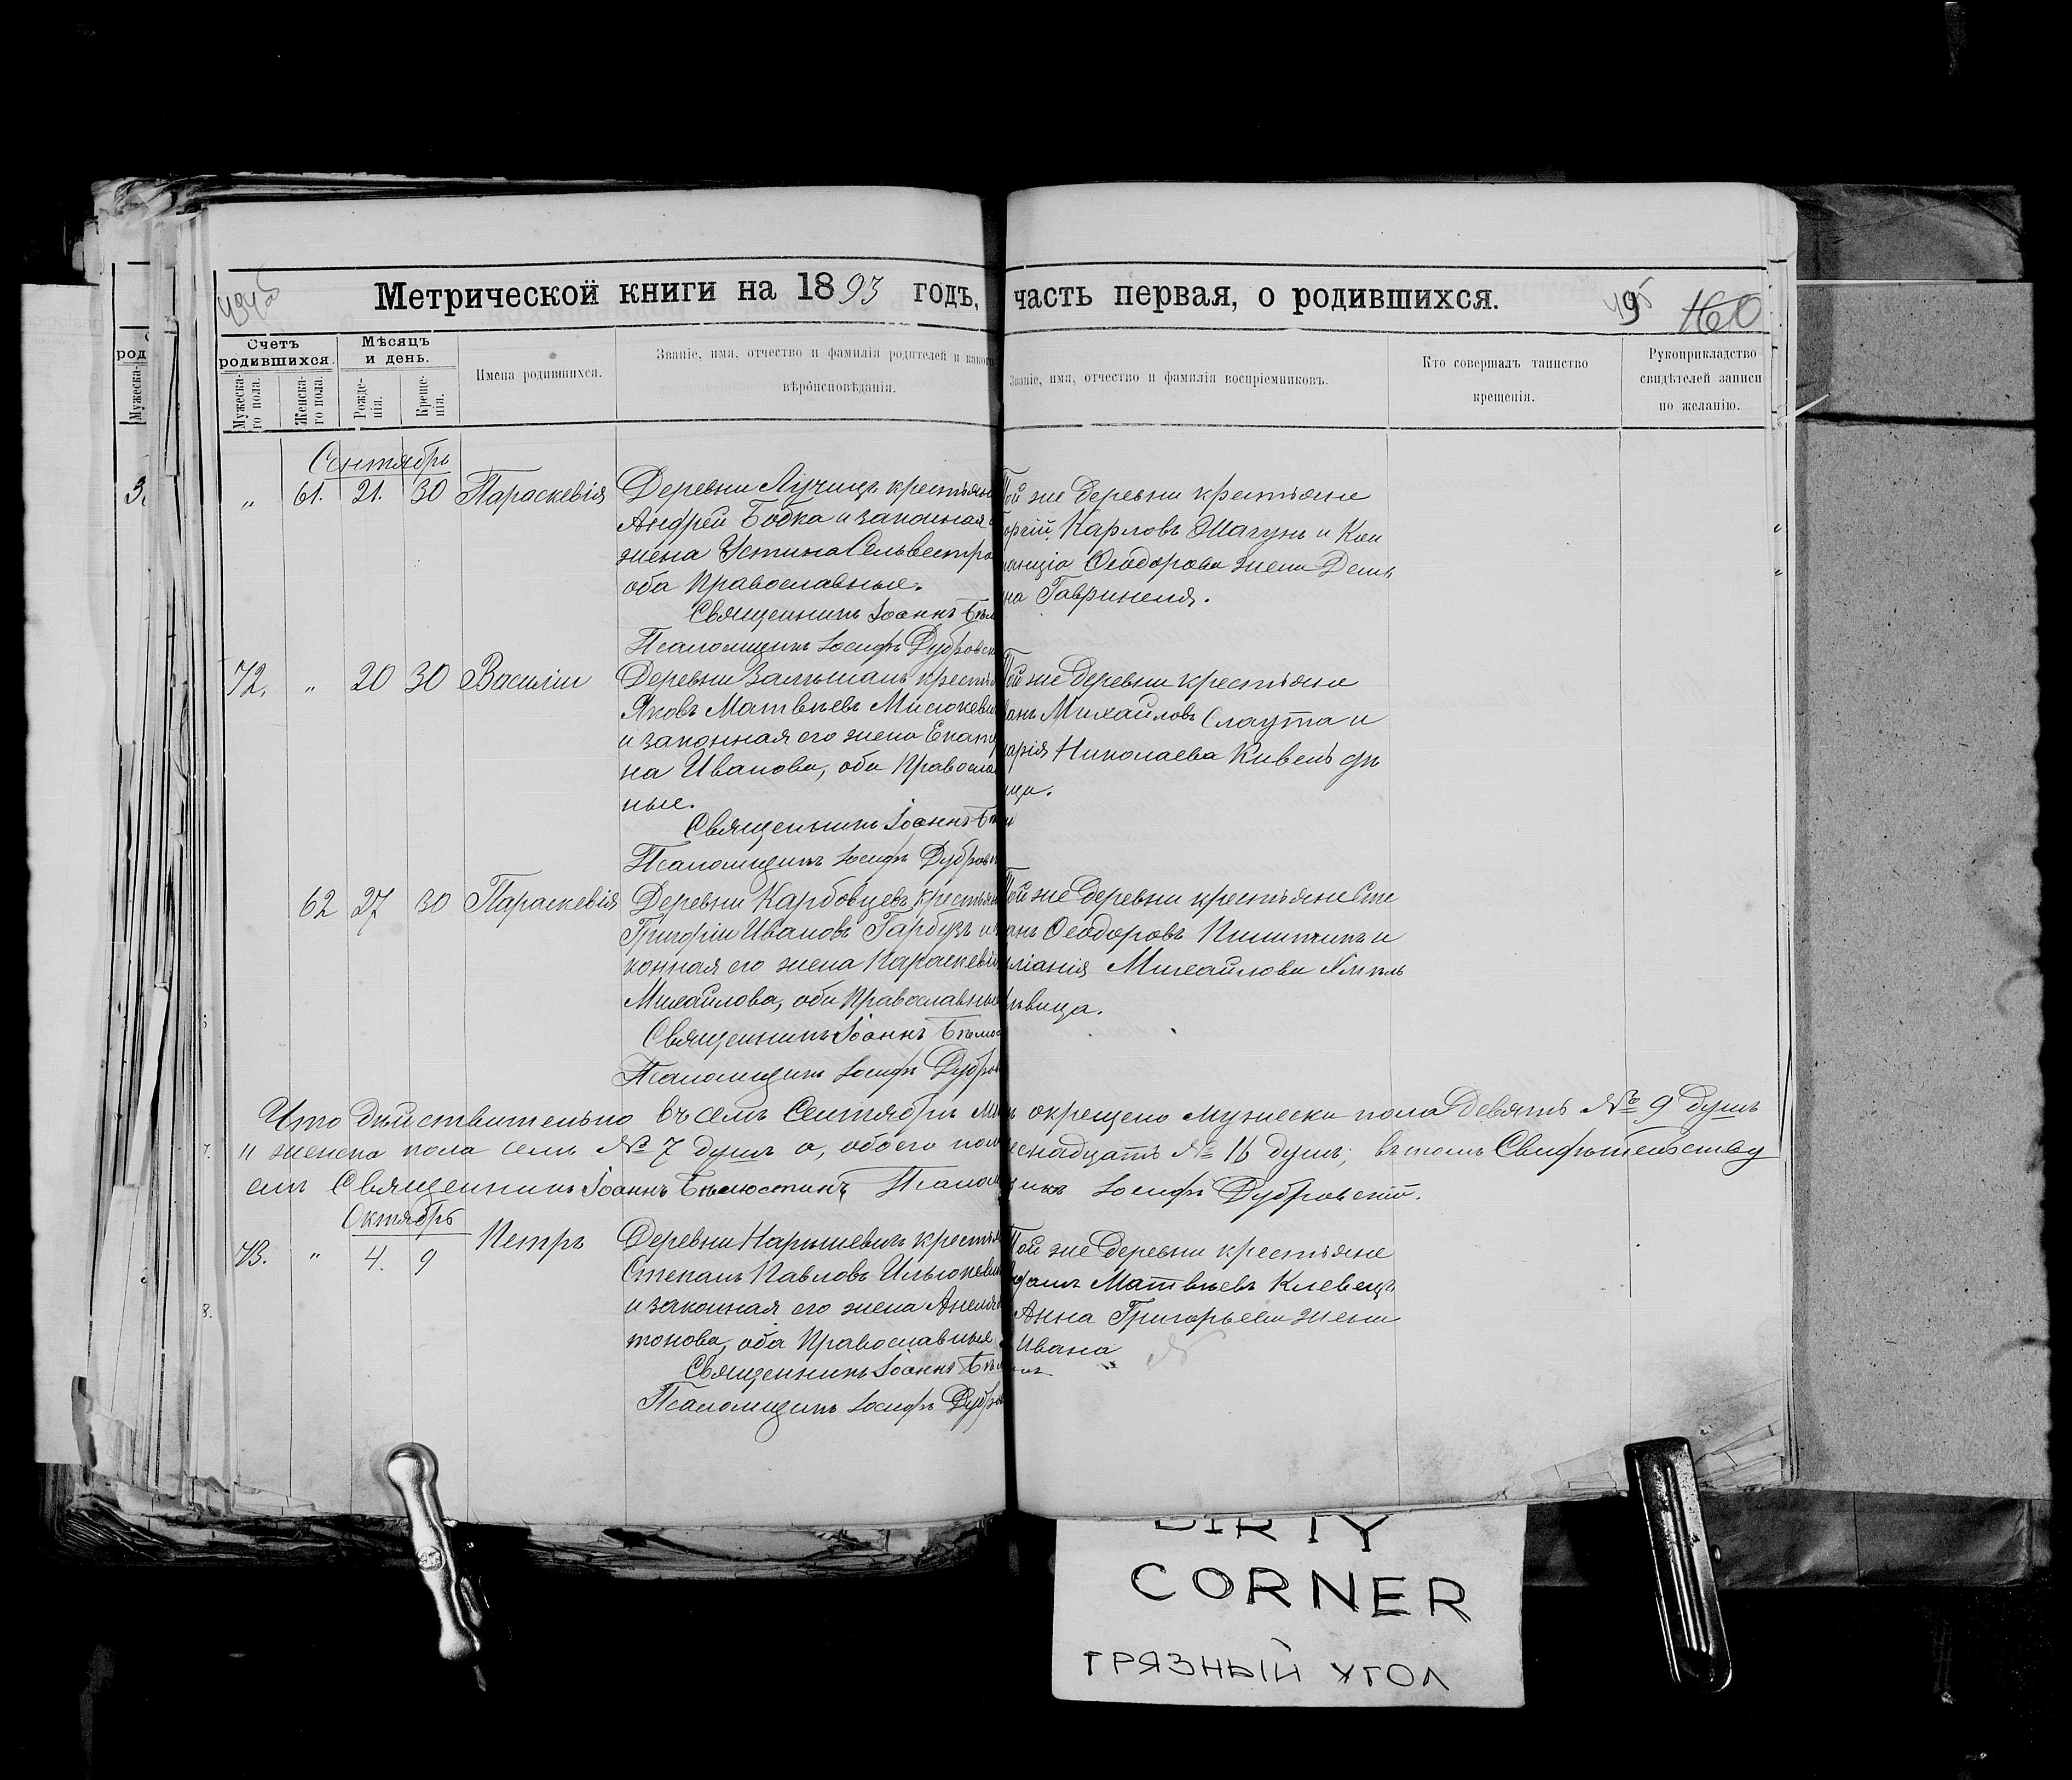 Метрической книги на 1893 годъ, часть первая, о родившихся.
160
Счетъ родившихся.
Мѣсяцъ и день.
Мужеска-го пола.
Женска-го пола.
Рожде-нія.
Креще-нія.
Имена родившихся.
Званіе, имя, отчество и фамилія родителей и какого
вѣроисповѣданія.
Званіе, имя, отчество и фамилія воспріемниковъ.
Кто совершалъ таинство
крещенія.
Рукоприкладство
свидѣтелей записи
по желанію.
Сентябрь
" 61. 21. 30 Параскевія
Деревни Лучицъ крестьян
Андрей Бобка и законная
жена Устина Сельвестро
оба Православные.
Священникъ Іоаннъ Бѣл
Псаломщикъ Іосифъ Дубровск
Той же деревни крестьяне
Карловъ Шагунъ и Кон
Ѳеодорова жена
Гавринеля.
72. " 20 30 Василій
Деревни крестья
Яковъ Матвѣевъ Мисюкевич
и законная его жена Екате
на Иванова, оба Правосла
ные.
Священникъ Іоаннъ Бѣ
Псаломщикъ Іосифъ Дубров
Той же деревни крестьяне
Михайловъ Слаута и
арія Николаева Кивель дѣ
ица.
62 27 30 Параскевія
Деревни Карбовцевъ крестьян
Григорій Ивановъ Гарбузъ и
конная его жена Параскевія
Михайлова, оба Православные
Священникъ Іоаннъ Бѣлюс
Псаломщикъ Іосифъ Дубров
Той же деревни крестьяне Сте
анъ Ѳеодоровъ и
ліанія Михайлова
ѣвица.
Что дѣйствительно въ семъ Сентябрѣ окрещено мужеска пола Девять № 9 душъ
и женска пола семь № 7 душъ а, обоего пол еснадцать № 16 душъ; въ томъ Свидѣтельству
емъ Священникъ Іоаннъ Бѣлюстинъ Псалом икъ Іосифъ Дубровскій.
Октябрь
73. " 4. 9 Петръ
Деревни Нарышевичъ крестья
Степанъ Павловъ Ильюкевич
и законная его жена Анеля
тонова, оба Православные
Священникъ Іоаннъ Бѣл
Псаломщикъ Іосифъ Дубров
Той же деревни крестьяне
Матвѣевъ Клевецъ
Анна Григорьева жена
Ивана
DIRTY
CORNER
ГРЯЗНЫЙ УГОЛ